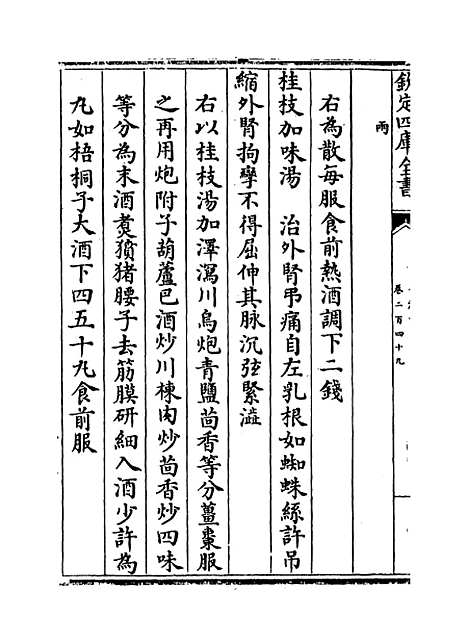 欽定四庫全書
卷二百四十九
兩
右為散每服食前熱酒調下二錢
桂枝加味湯　治外腎弔痛自左乳根如蜘蛛絲許吊
縮外腎拘攣不得屈伸其脉沉弦緊澁
右以桂枝湯加澤瀉川烏炮青鹽茴香等分薑棗服
之再用炮附子葫蘆巴酒炒川楝肉炒茴香炒四味
等分為末酒煑豶猪腰子去筋膜研細入酒少許為
丸如梧桐子大酒下四五十丸食前服